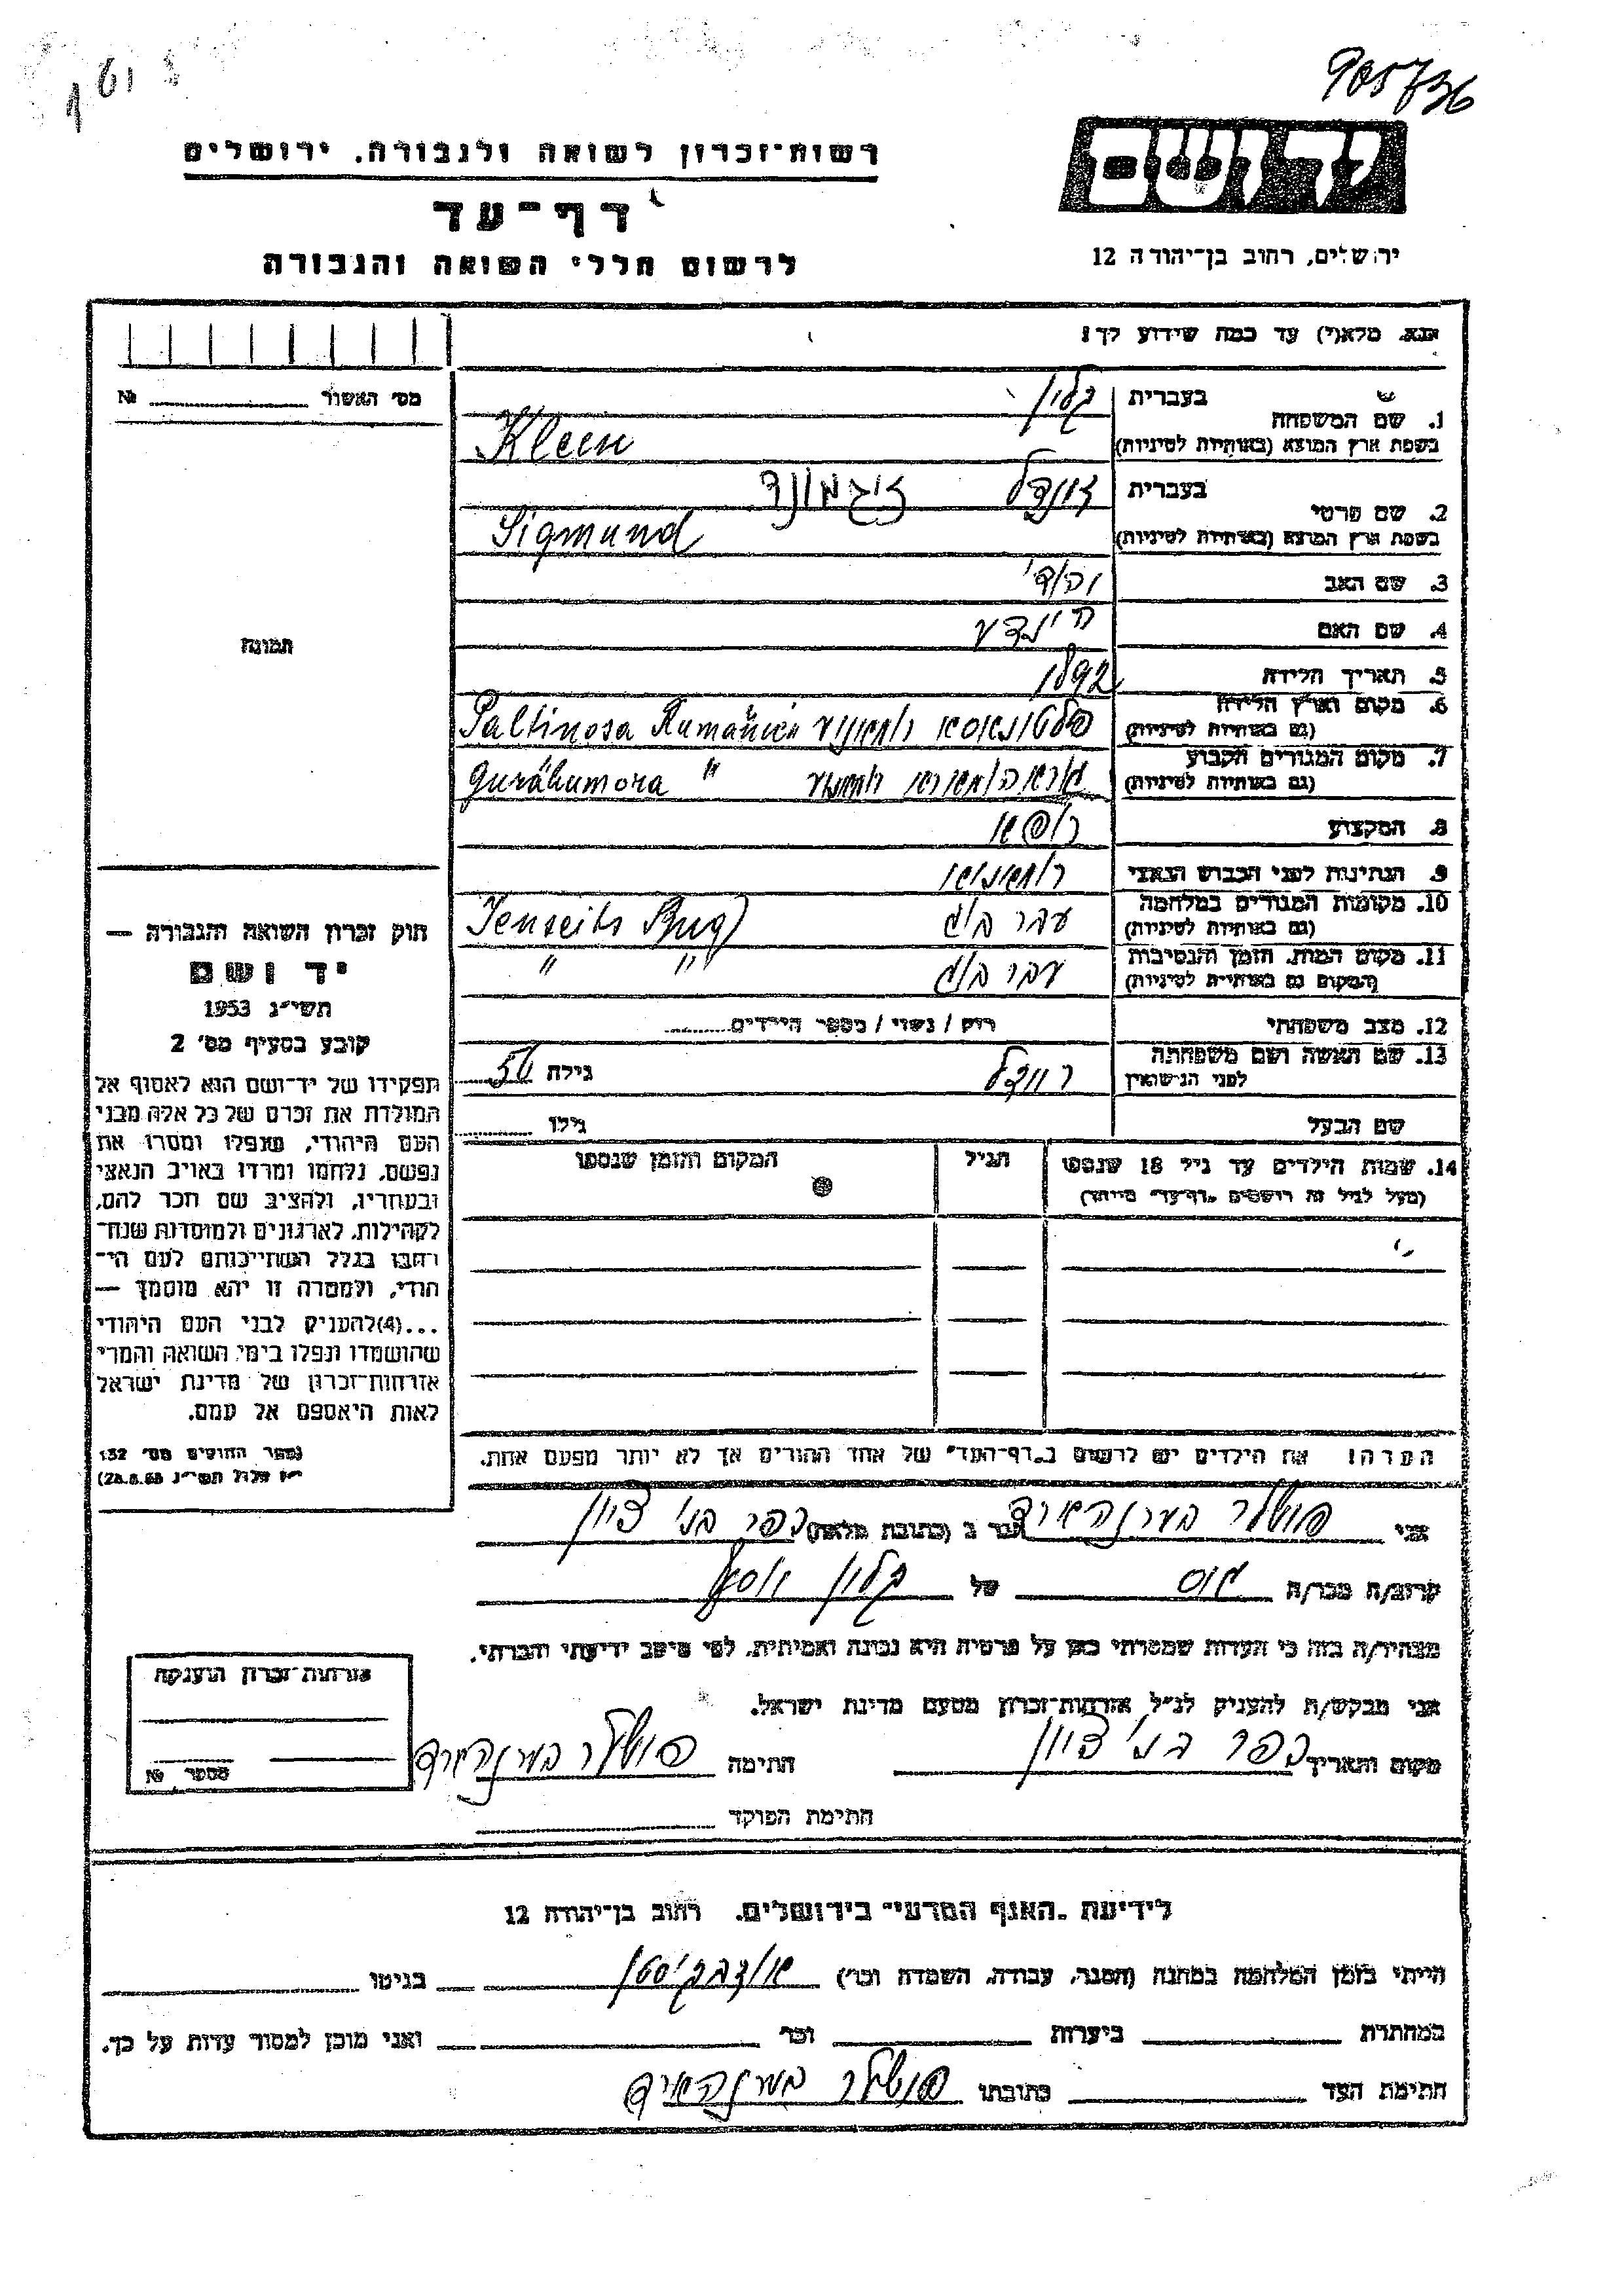 905736
רשות־זכרון לשואה ולגבורה, ירושלים
דף־עד
לרשום חללי השואה והגבורה
ירושלים, רחוב בן־יהודה 12
אנא, מלא(י) עד כמה שידוע לך:
מס׳ האשור № 
1. שם המשפחה בעברית קליין
בשפת ארץ המוצא (באותיות לטיניות) Klein
2. שם פרטי בעברית זיגמונד
בשפת ארץ המוצא (באותיות לטיניות) Sigmund
3. שם האב
4. שם האם הינדע
5. תאריך הלידה 1892
6. מקום וארץ הלידה (גם באותיות לטיניות) פלטינאסא ראמעניע Paltinosa Rumänien
7. מקום המגורים הקבוע (גם באותיות לטיניות) גוראהומארא Gurahumora "
8. המקצוע רופא
9. הנתינות לפני הכבוש הנאצי
10. מקומות המגורים במלחמה (גם באותיות לטיניות) עבר בוג Jenseits Bug
11. מקום המות, הזמן והנסיבות (המקום גם באותיות לטיניות) עבר בוג " "
12. מצב משפחתי רוק / נשוי / מספר הילדים
13. שם האשה ושם משפחתה לפני הנישואין רייזל גילה
שם הבעל גילו
14. שמות הילדים עד גיל 18 שנספו הגיל המקום והזמן שנספו
(מעל לגיל זה רושמים „דף־עד״ מיוחד)
הערה: את הילדים יש לרשום ב„דף־העד״ של אחד ההורים אך לא יותר מפעם אחת.
תמונה
חוק זכרון השואה והגבורה —
יד ושם
תשי״ג 1953
קובע בסעיף מס׳ 2
תפקידו של יד־ושם הוא לאסוף אל
המולדת את זכרם של כל אלה מבני
העם היהודי, שנפלו ומסרו את
נפשם, נלחמו ומרדו באויב הנאצי
ובעוזריו, ולהציב שם וזכר להם,
לקהילות, לארגונים ולמוסדות שנח־
רבו בגלל השתייכותם לעם הי־
הודי, ולמטרה זו יהא מוסמך —
...(4)להעניק לבני העם היהודי
שהושמדו ונפלו בימי השואה והמרי
אזרחות־זכרון של מדינת ישראל
לאות היאספם אל עמם.
(ספר החוקים מס׳ 132
י״ז אלול תשי״ג 28.8.53)
אני בערנהארד הגר ב (כתובת מלאה) כפר בני ציון
קרוב/ה מכר/ה גיס של קליין
מצהיר/ה בזה כי העדות שמסרתי כאן על פרטיה היא נכונה ואמיתית, לפי מיטב ידיעתי והכרתי.
אני מבקש/ת להעניק לנ״ל אזרחות־זכרון מטעם מדינת ישראל.
מקום ותאריך כפר בני ציון חתימה בערנהארד
חתימת הפוקד
אזרחות־זכרון הוענקה
מספר №
לידיעת „האגף המדעי״ בירושלים, רחוב בן־יהודה 12
הייתי בזמן המלחמה במחנה (הסגר, עבודה, השמדה וכו׳) אוזבקיסטן בגיטו
במחתרת ביערות וכו׳ ואני מוכן למסור עדות על כך.
חתימת העד כתובתו בערנהארד